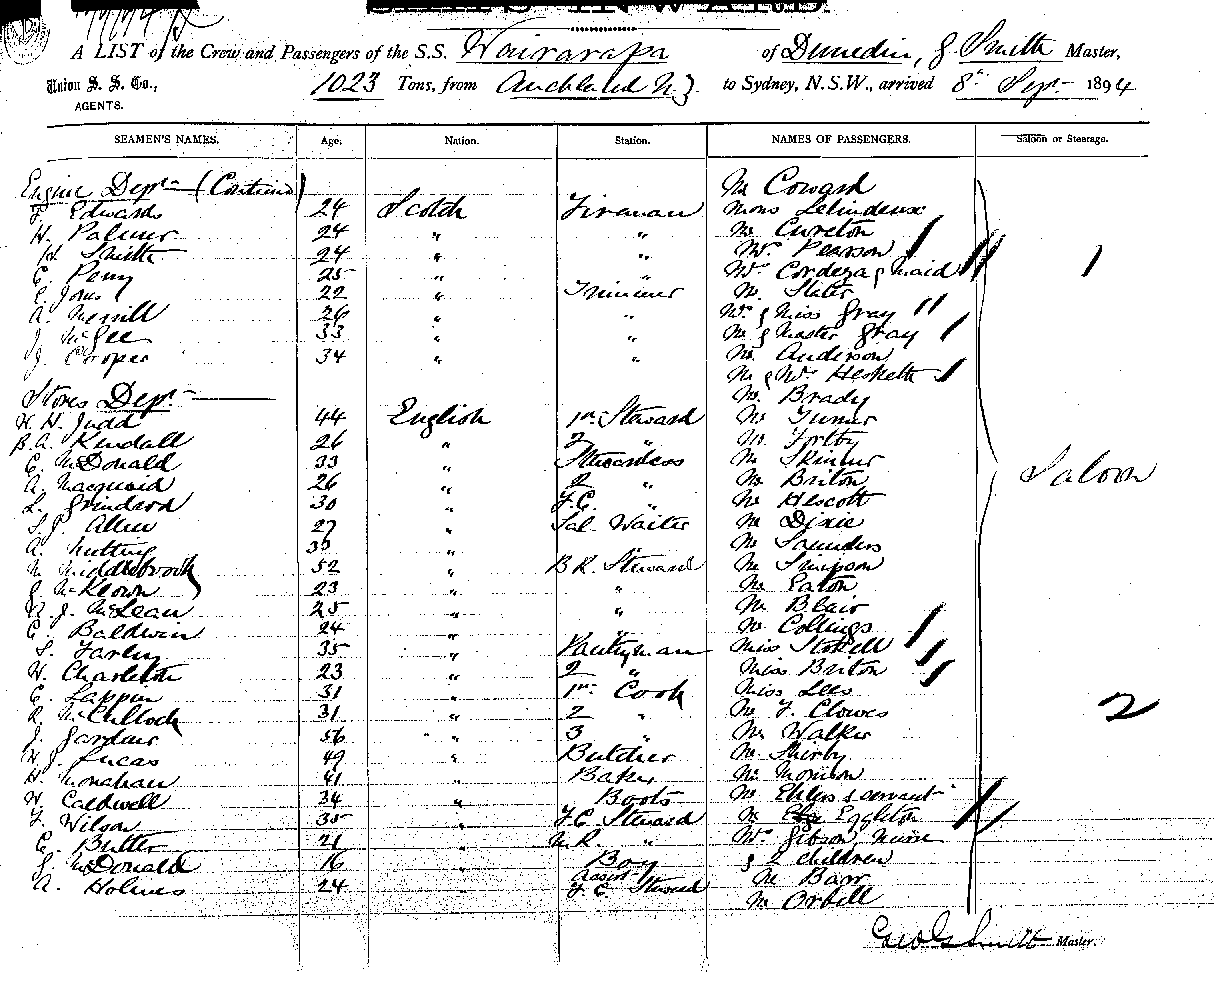 A LIST of the Crew and Passengers of the S.S. Wairarapa of Dunedin, G Smith Master,
Union S. S. Co., AGENTS. 1023 Tons, from Auckland N.Z. to Sydney, N.S.W., arrived 8th Sept 1894
SEAMEN'S NAMES. Age. Nation. Station. NAMES OF PASSENGERS. Saloon or Steerage.
Engine Dept (Continued) Mr Coward
Edwards 24 Scotch Fireman Mons
H. Palmer 24 " " Mr Cureton
H. Smith 24 " " Mrs Pearson
C. Perry 25 " " Mrs Cordeza & Maid 1
E. Jones 22 " Trimmer Mr Slater
A. Merrill 26 " " Mrs & Miss Gray
J. McGee 33 " " Mr & Master Gray
J. Cooper 34 " " Mr Anderson
Mr & Mrs Hesketh
Stores Dept Mr Brady
H. H. Judd 44 English 1st Steward Mr Turner
B. A. Kendall 26 " 2 " Mr
C. McDonald 33 " Stewardess Mr Skinner
A. Macquaid 26 " 2 " Mr Briton Saloon
L. Grindrod 30 " F.C. Mr Hescott
S. J. Allen 27 " Sal. Waiter Mr Dixie
A. Nutting 33 " Mr Saunders
M. Middlebrook 52 " B.R. Steward Mr Simpson
J. McKeown 23 " " Mr Eaton
N. J. McLean 25 " Mr Blair
C. Baldwin 24 " " Mr Collings
S. Farley 35 " Pantryman Miss Stokell
W. Charleton 23 " 2 " Miss Briton
C. Lappin 31 " 1st Cook Miss Lees
R. McCullock 31 " 2 " Mr F. Clowes 2
J. Gardner 56 " 3 " Mr Walker
W. J. Lucas 49 " Butcher Mr Shirby
H. Monahan 41 " Baker Mr Morrison
W. Caldwell 34 " Boots Mr Ehlers & servant
F. Wilson 35 F.C. Steward Mr Eggleton
C. Butler 21 " M.R. " Mrs Gibson, Nurse
J. McDonald 16 " Boy & 2 children
A. Holmes 24 " Assist F.C. Steward Mr Barr
Mr Orbell
Geo G Smith Master.